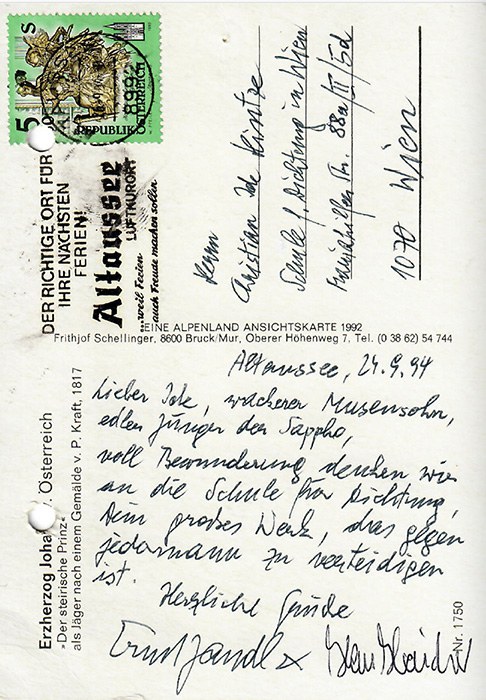 5 S
REPUBLIK
ÖSTERREICH
8992
DER RICHTIGE ORT FÜR
IHRE NÄCHSTEN
FERIEN!
Altaussee
LUFTKURORT
...weil Ferien
auch Freude machen sollen
Herrn
Christian Ide Hintze
Schule f. Dichtung in Wien
Mariahilfer Str. 88a/III/5d
1070 Wien
EINE ALPENLAND ANSICHTSKARTE 1992
Frithjof Schellinger, 8600 Bruck/Mur, Oberer Höhenweg 7, Tel. (0 38 62) 54 744
Altaussee, 24.9.94
Lieber Ide, wackerer Musensohn,
edler Jünger der Sappho,
voll Bewunderung denken wir
an die Schule für Dichtung,
Dein großes Werk, das gegen
jedermann zu verteidigen
ist.
Herzliche Grüße
Ernst Jandl
Erzherzog Österreich
»Der steirische Prinz«
als Jäger nach einem Gemälde v. P. Kraft, 1817
Nr. 1750